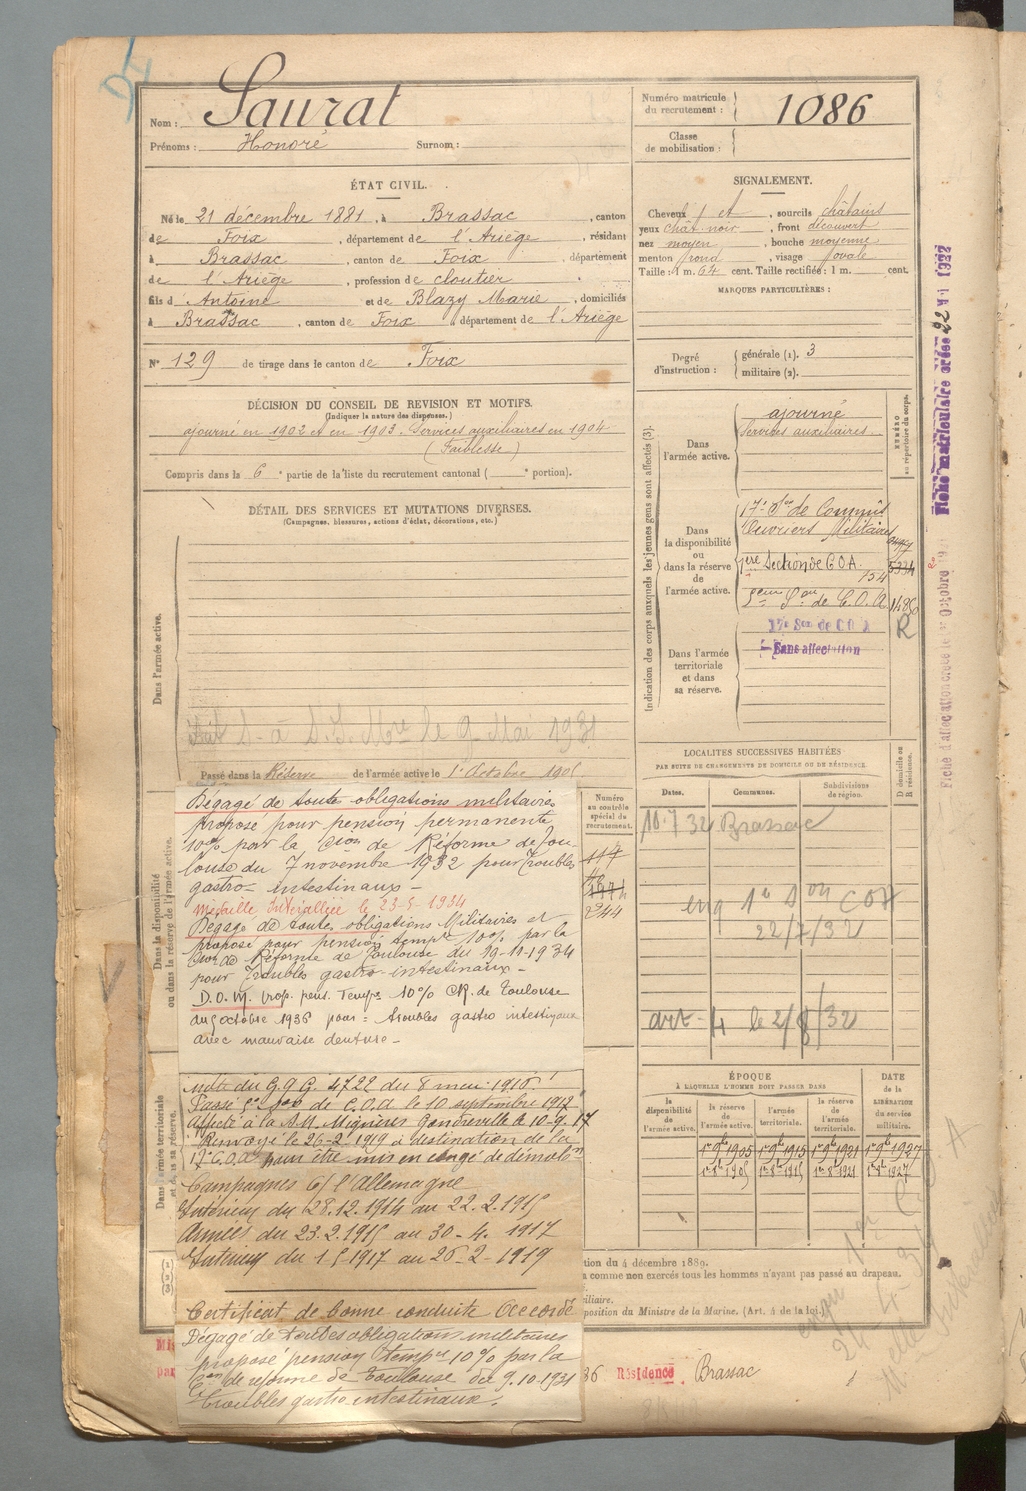 Nom : Saurat
Prénoms : Honoré Surnom :
Numéro matricule du recrutement : 1086
Classe de mobilisation :
ÉTAT CIVIL.
Né le 21 décembre 1881, à Brassac, canton
de Foix, département de l'Ariège, résidant
à Brassac, canton de Foix, département
de l'Ariège, profession de cloutier
fils d' Antoine et de Blazy Marie, domiciliés
à Brassac, canton de Foix, département de l'Ariège
N° 129 de tirage dans le canton de Foix
SIGNALEMENT.
Cheveux et, sourcils châtains
yeux chat. noir, front découvert
nez moyen, bouche moyenne
menton rond, visage ovale
Taille : 1 m. 64 cent. Taille rectifiée : 1 m. cent.
MARQUES PARTICULIÈRES :
Degré d'instruction : générale (1). 3
militaire (2).
DÉCISION DU CONSEIL DE REVISION ET MOTIFS.
(Indiquer la nature des dispenses.)
ajourné en 1902 et en 1903. Services auxiliaires en 1904
(Faiblesse)
Compris dans la 6e partie de la liste du recrutement cantonal ( e portion).
DÉTAIL DES SERVICES ET MUTATIONS DIVERSES.
(Campagnes, blessures, actions d'éclat, décorations, etc.)
Dans l'armée active.
le 9 Mai 1931
Passé dans la Réserve de l'armée active le 1er Octobre 1905
Indication des corps auxquels les jeunes gens sont affectés (3).
NUMÉRO au répertoire du corps.
Dans l'armée active.
ajourné
Services auxiliaires
Dans la disponibilité ou dans la réserve de l'armée active.
17e Son de Commis
Ouvriers Militaires
1ère Section de C.O.A. 5334
154
5eme Son de C.O.A. 1486
R
17e Son de COA
Sans affectation
Dans l'armée territoriale et dans sa réserve.
Fiche matriculaire créée 22 1922
Fiche d'affectation créée le 1er Octobre
LOCALITES SUCCESSIVES HABITÉES
PAR SUITE DE CHANGEMENTS DE DOMICILE OU DE RÉSIDENCE.
Dates. Communes. Subdivisions de région. D domicile ou R résidence.
16.7 32 Brassac
22/7/32
le 2/8/32
Dans la disponibilité ou dans la réserve de l'armée active.
Numéro au contrôle spécial du recrutement.
244
Dégagé de toute obligations militaires
proposé pour pension permanente
10% par la Con de Réforme de Tou-
louse du 7 novembre 1932 pour Troubles
gastro-intestinaux -
médaille Interalliée le 23-5-1934
Dégagé de toutes obligations Militaires et
proposé pour pension tempre 10% par la
Con de Réforme de Toulouse du 19-11-1934
pour Troubles gastro-intestinaux -
D.O.M. prop. pens. Temp. 10% CR. de Toulouse
du 5 octobre 1936 pour : troubles gastro intestinaux
avec mauvaise denture -
Dans l'armée territoriale et dans sa réserve.
note du G.Q.G. 4722 du 8 1916.
Passé 5e Son de C.O.A le 10 septembre 1917
Affecté à la S.M. Mignières Gondreville le 10-9-17
Renvoyé le 26-2-1919 à destination de la
17e C.O.A pour être mis en congé de démobon
Campagnes C/ l'Allemagne
Intérieur du 28.12.1914 au 22.2.1915
Armées du 23.2.1915 au 30-4.1917
Intérieur du 1-5-1917 au 26-2-1919
Certificat de bonne conduite Accordé
Dégagé de toutes obligations militaires
proposé pension tempre 10% par la
Con de réforme de Toulouse du 9.10.1931
Troubles gastro intestinaux.
ÉPOQUE
À LAQUELLE L'HOMME DOIT PASSER DANS
la disponibilité de l'armée active. la réserve de l'armée active. l'armée territoriale. la réserve de l'armée territoriale.
DATE de la LIBÉRATION du service militaire.
1er 9b 1905 1er 9b 1915 1er 9b 1921 1er 9b 1927
1er 8b 1905 1er 8b 1915 1er 8b 1921 1er 8b 1927
tion du 4 décembre 1889.
a comme non exercés tous les hommes n'ayant pas passé au drapeau.
iliaire.
position du Ministre de la Marine. (Art. 4 de la loi.)
36 Résidence Brassac